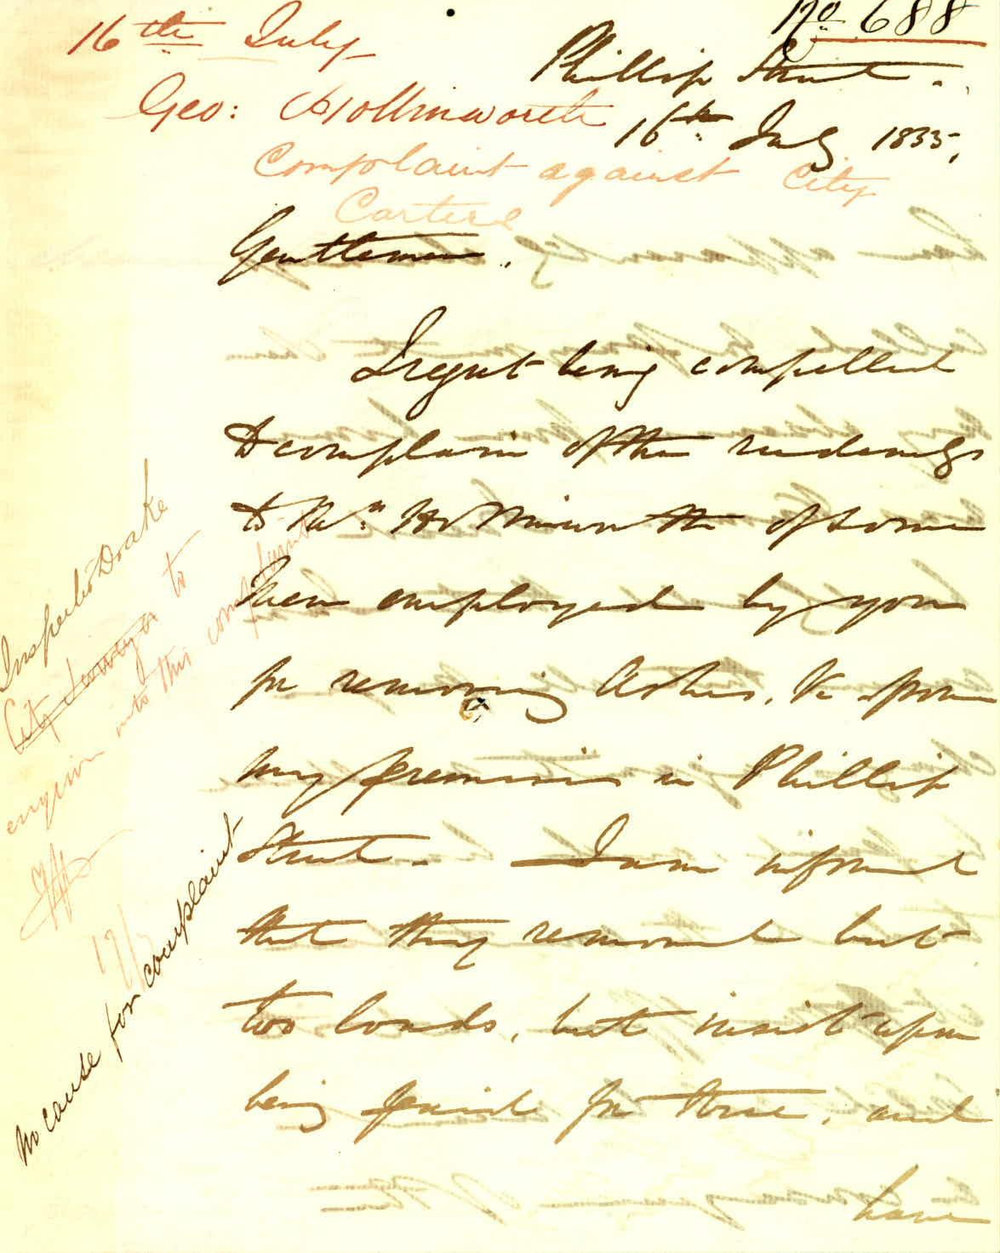 No 688
16th July
Phillip Street.
Geo: Hollinworth
16th July 1835.
Complaint against City
Carters
Gentlemen.
I regret being compelled
to complain of the rudeness
to Mrs Hollinworth of some
men employed by you
for removing Ashes, &c from
my premises in Phillip
Street. I am informed
that they removed but
two loads, but insist upon
being paid for three, and
have
Inspector Drake
City Surveyor to
enquire into this complaint
17/
No cause for complaint